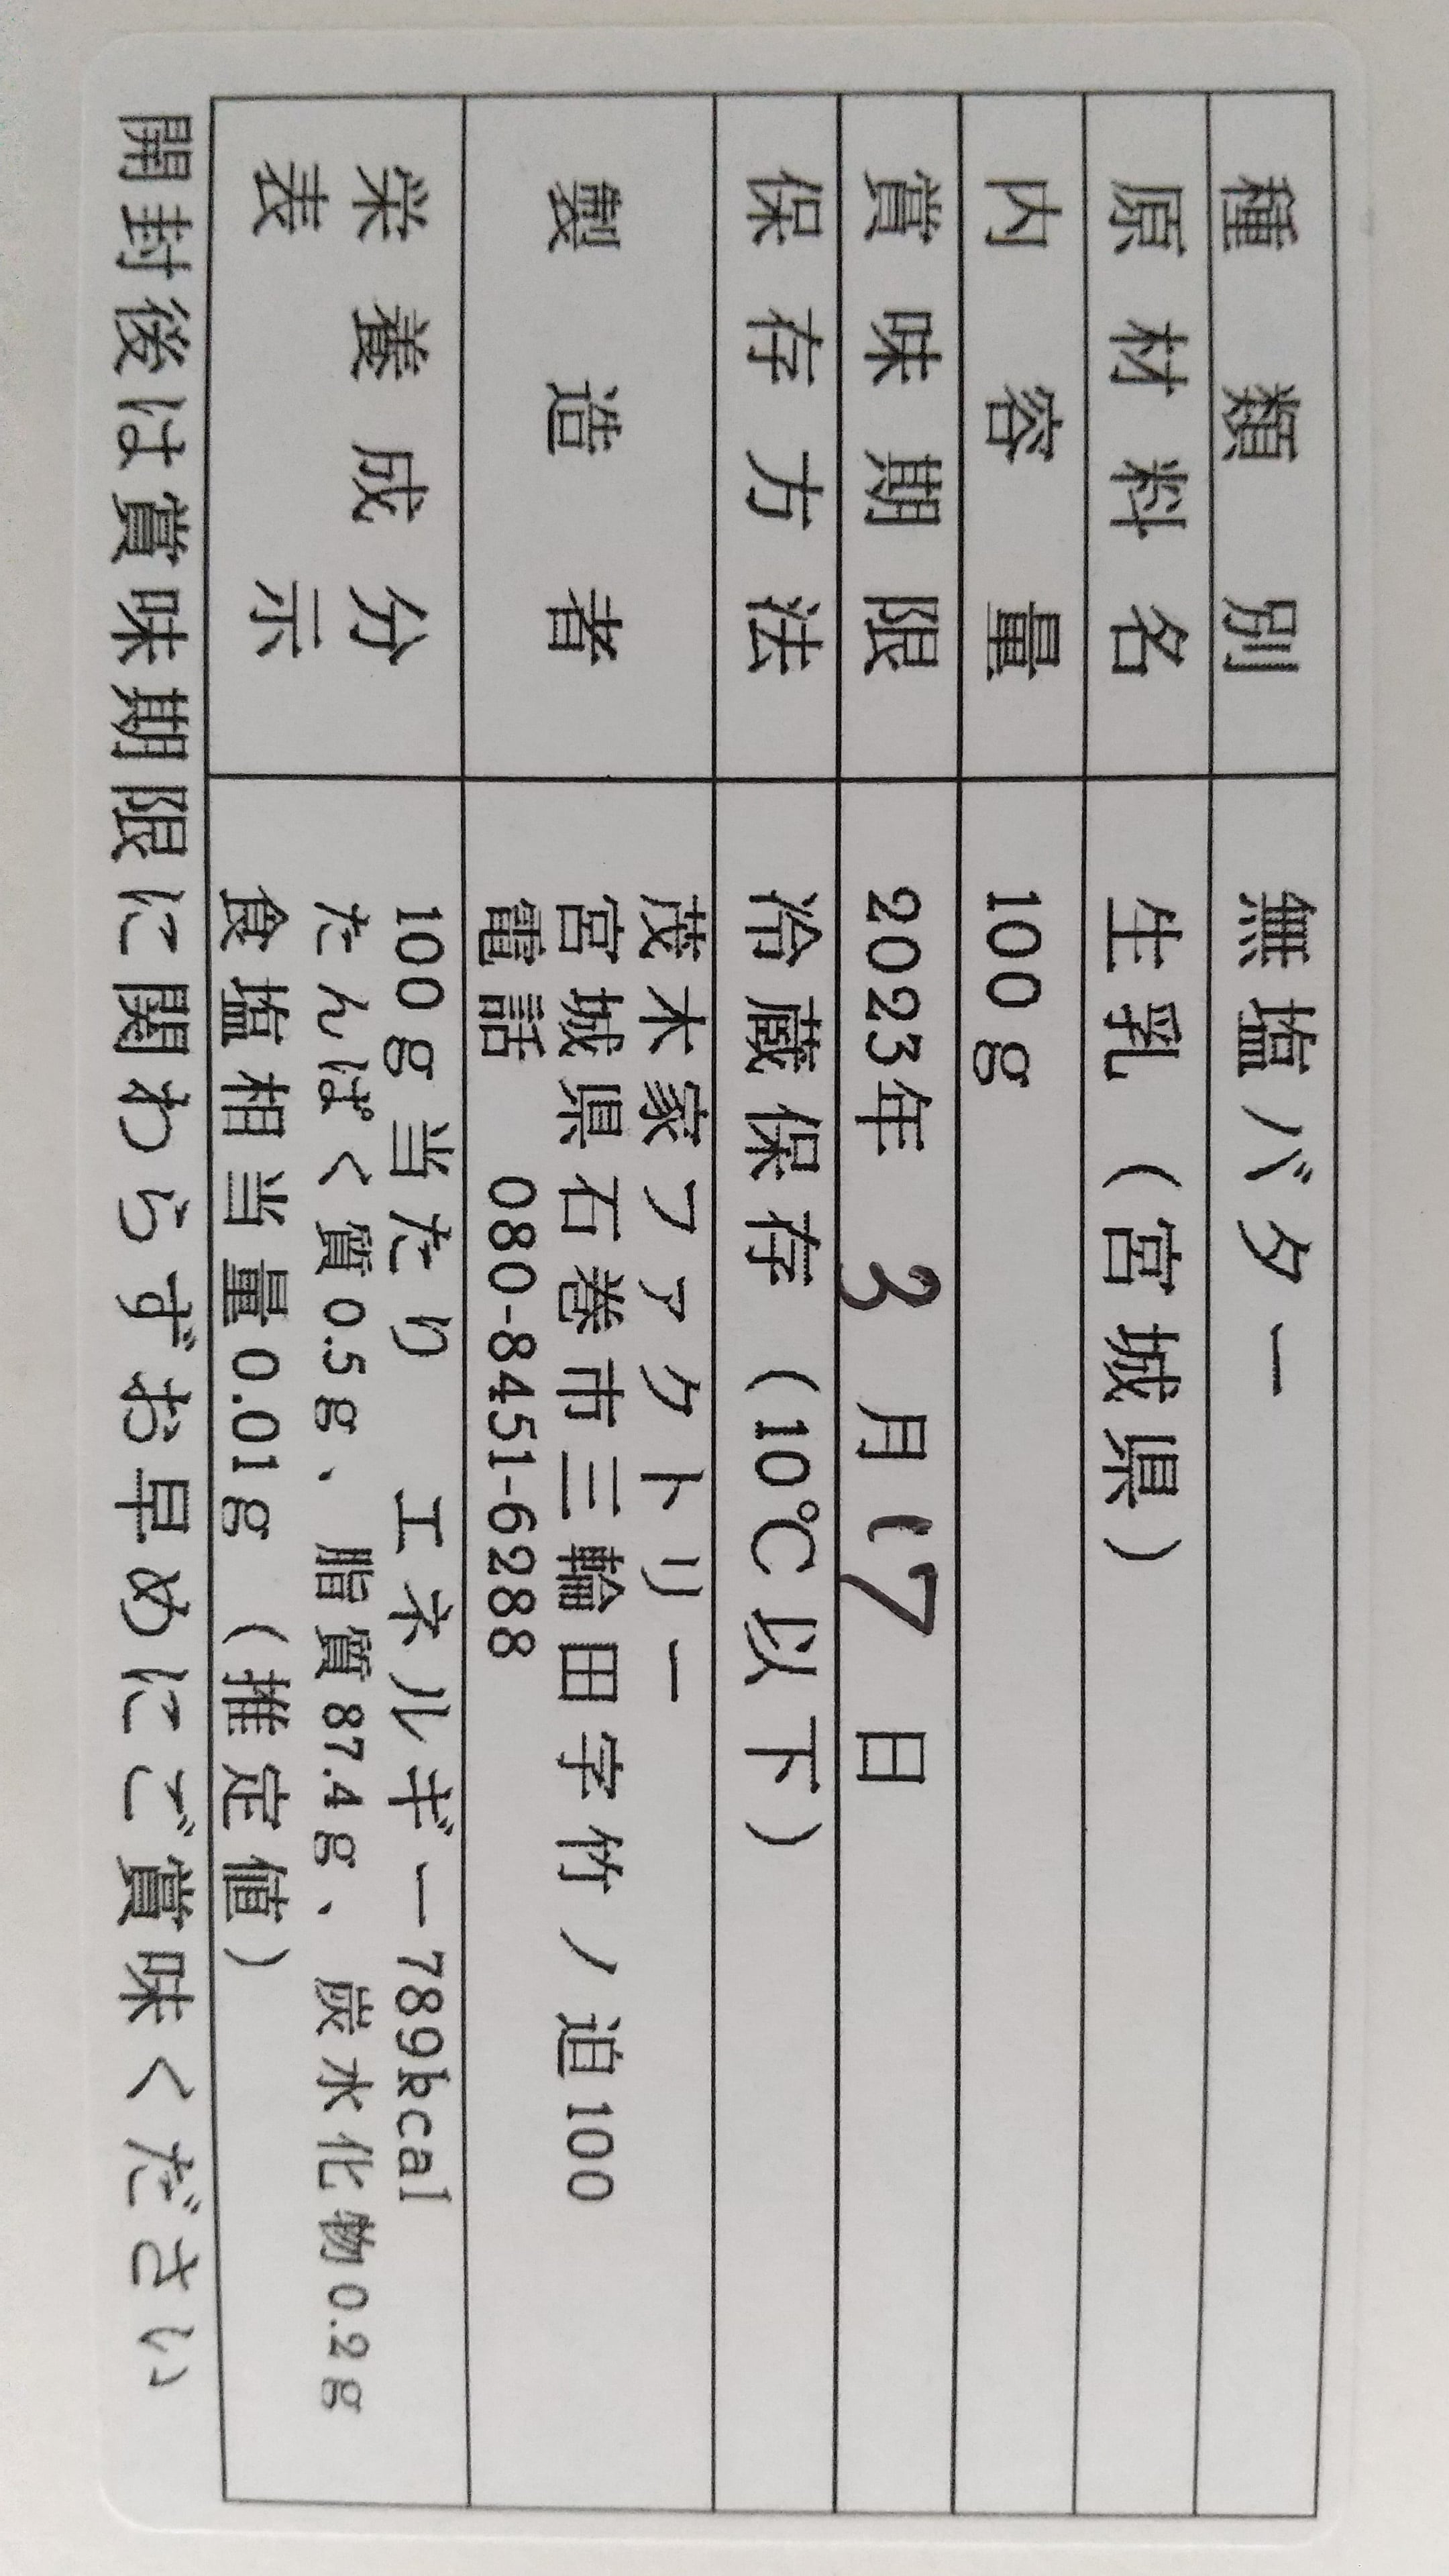 種類別 無塩バター
原材料名 生乳（宮城県）
内容量 100g
賞味期限 2023年 3月17日
保存方法 冷蔵保存（10℃以下）
製造者 茂木家ファクトリー
宮城県石巻市三輪田字竹ノ迫100
電話 080-8451-6288
栄養成分表示 100g当たり エネルギー789kcal
たんぱく質0.5g、脂質87.4g、炭水化物0.2g
食塩相当量0.01g（推定値）
開封後は賞味期限に関わらずお早めにご賞味ください